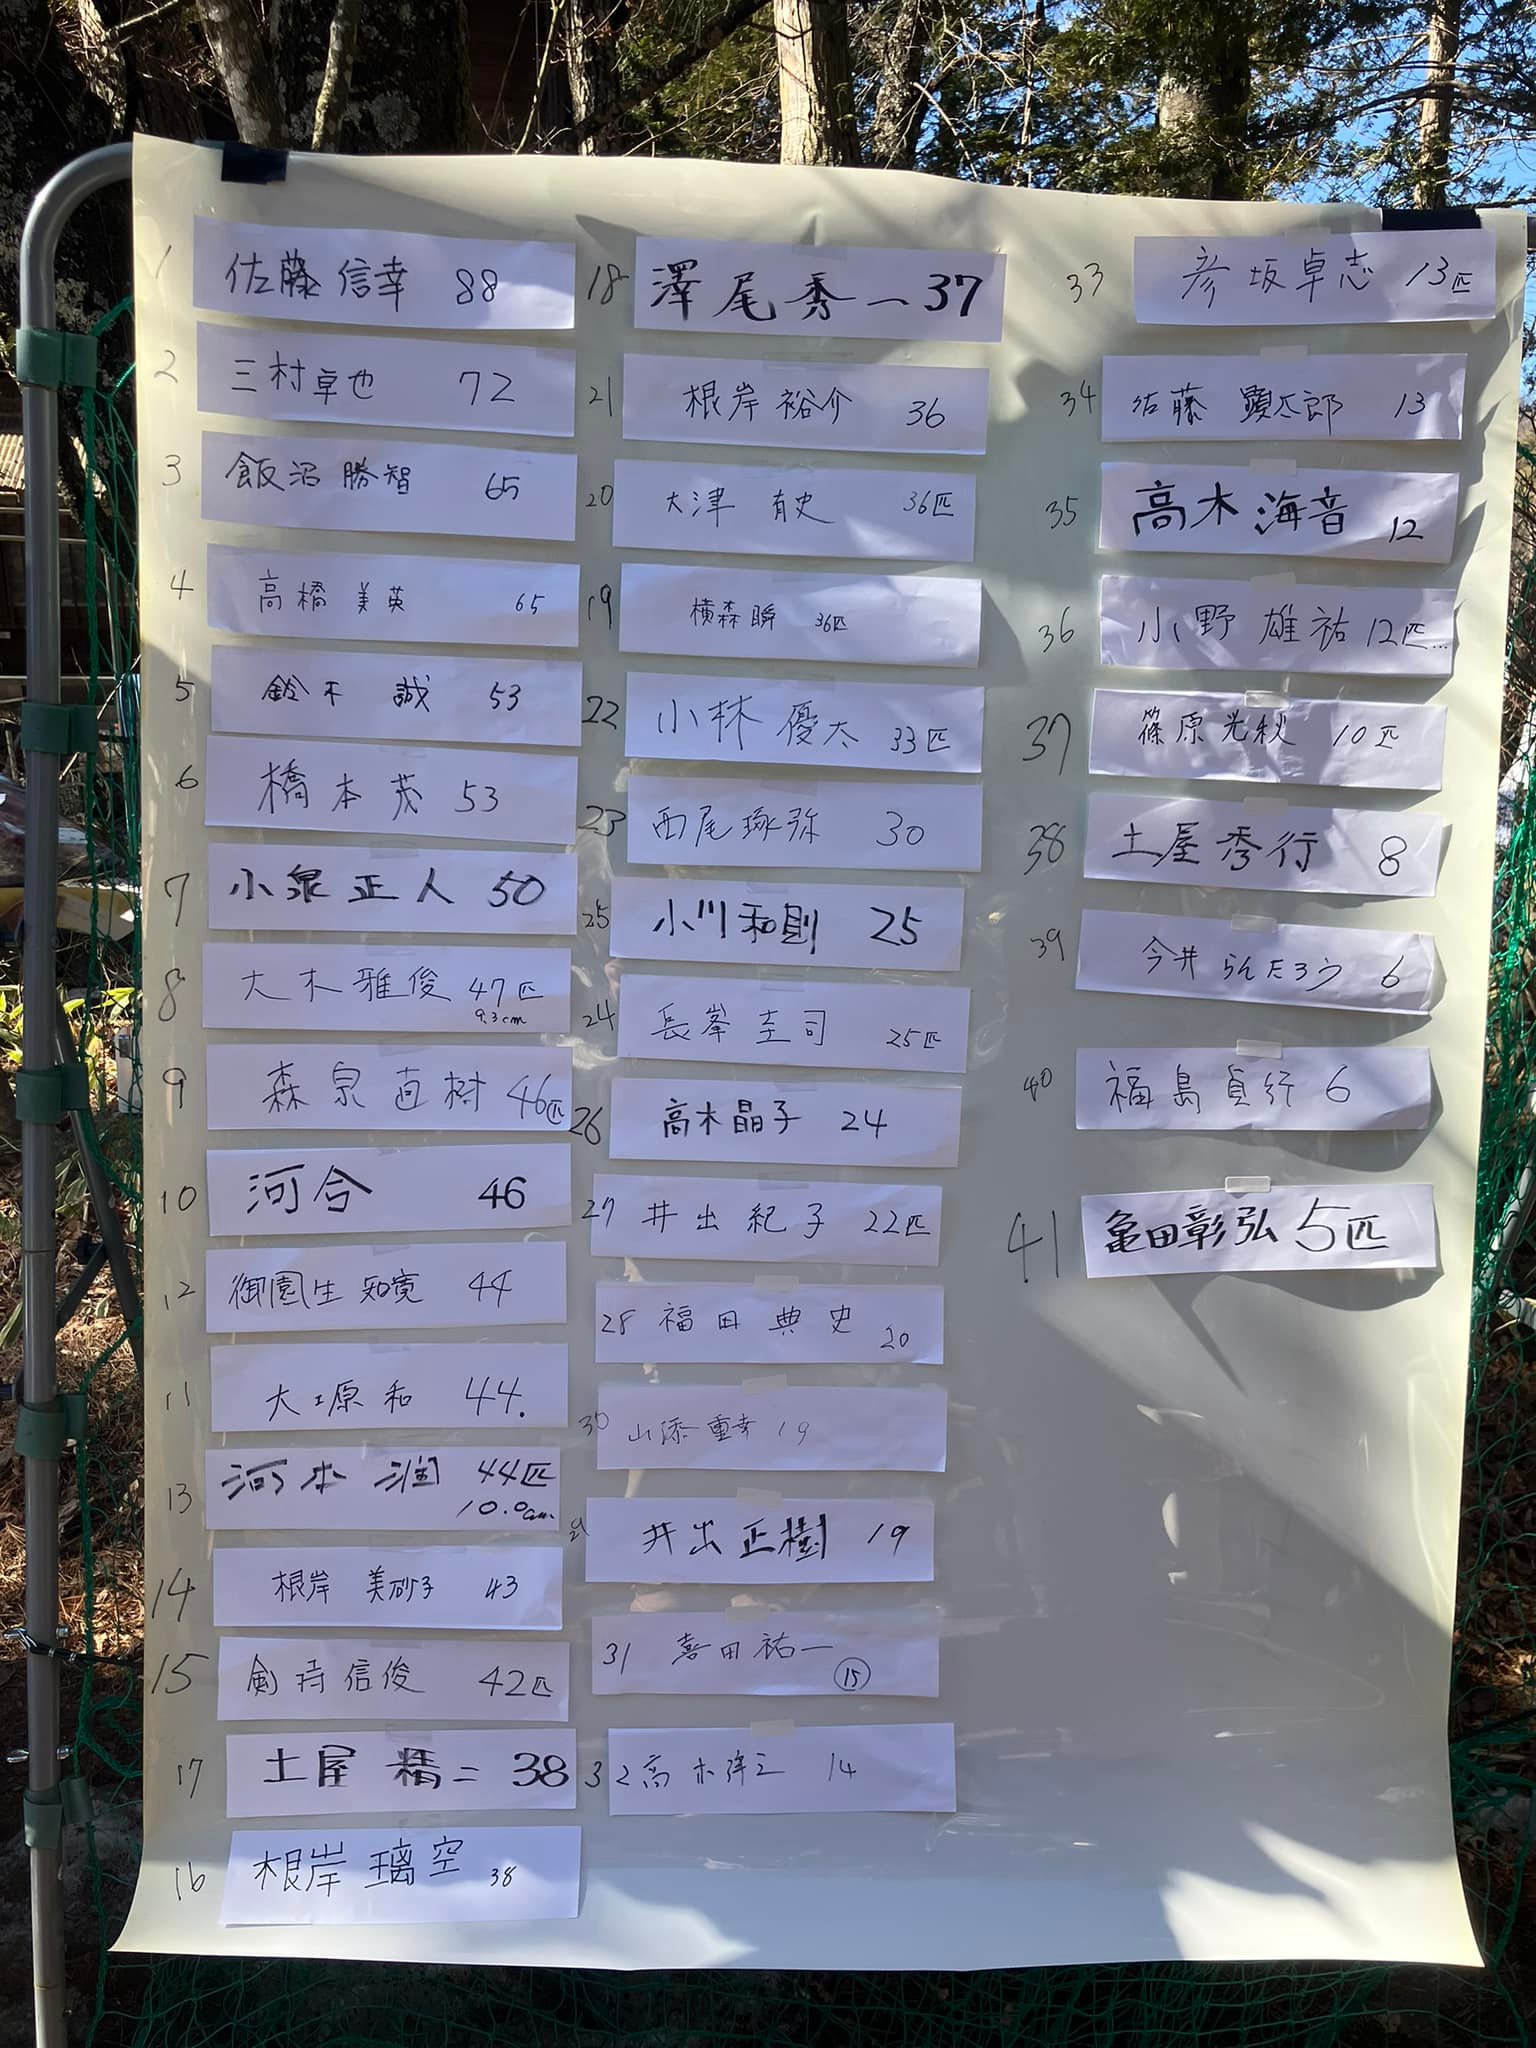 1 佐藤信幸 88
2 三村卓也 72
3 飯沼勝智 65
4 高橋美英 65
5 鈴木 誠 53
6 橋本茂 53
7 小泉正人 50
8 大木雅俊 47匹
9.3cm
9 森泉直樹 46匹
10 河合 46
12 御園生知寛 44
11 大塚原和 44.
13 河本 潤 44匹
10.0cm
14 根岸 美砂子 43
15 剣持信俊 42匹
17 土屋 精二 38
16 根岸璃空 38
18 澤尾秀一 37
21 根岸裕介 36
20 大津 有史 36匹
19 横森瞬 36匹
22 小林優太 33匹
23 西尾琢弥 30
25 小川和則 25
24 長峯圭司 25匹
26 高木晶子 24
27 井出紀子 22匹
28 福田典史 20
30 山添重幸 19
29 井出正樹 19
31 喜田祐一 15
32 高木洋三 14
33 彦坂卓志 13匹
34 佐藤 顕太郎 13
35 高木海音 12
36 小野雄祐 12匹...
37 篠原光秋 10匹
38 土屋秀行 8
39 今井らんたろう 6
40 福島貞行 6
41 亀田彰弘 5匹